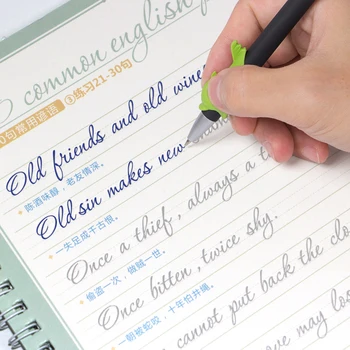 common english p
0句常用谚语 ③练习21-30句
Old friends and old wine
陈酒味醇，老友情深。
Old sin makes new shame
一失足成千古恨。
Once a thief, always a t
偷盗一次，做贼一世。
Once bitten, twice shy.
一朝被蛇咬，十年怕井绳。
cannot put back the clo
may los